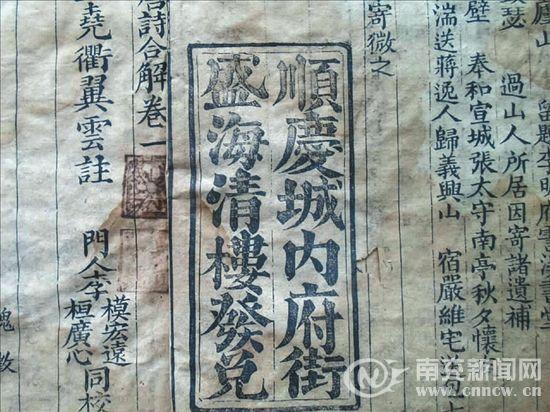 過山人所居因寄諸遺補
奉和宣城張太守南亭秋夕懷
湍送蔣逸人歸義興山 宿嚴維宅
寄微之
順慶城內府街
盛海清樓發兌
唐詩合解卷一
堯衢翼雲註
門人李
模宏遠
桓廣心
同校
南充新闻网
www.cnncw.cn